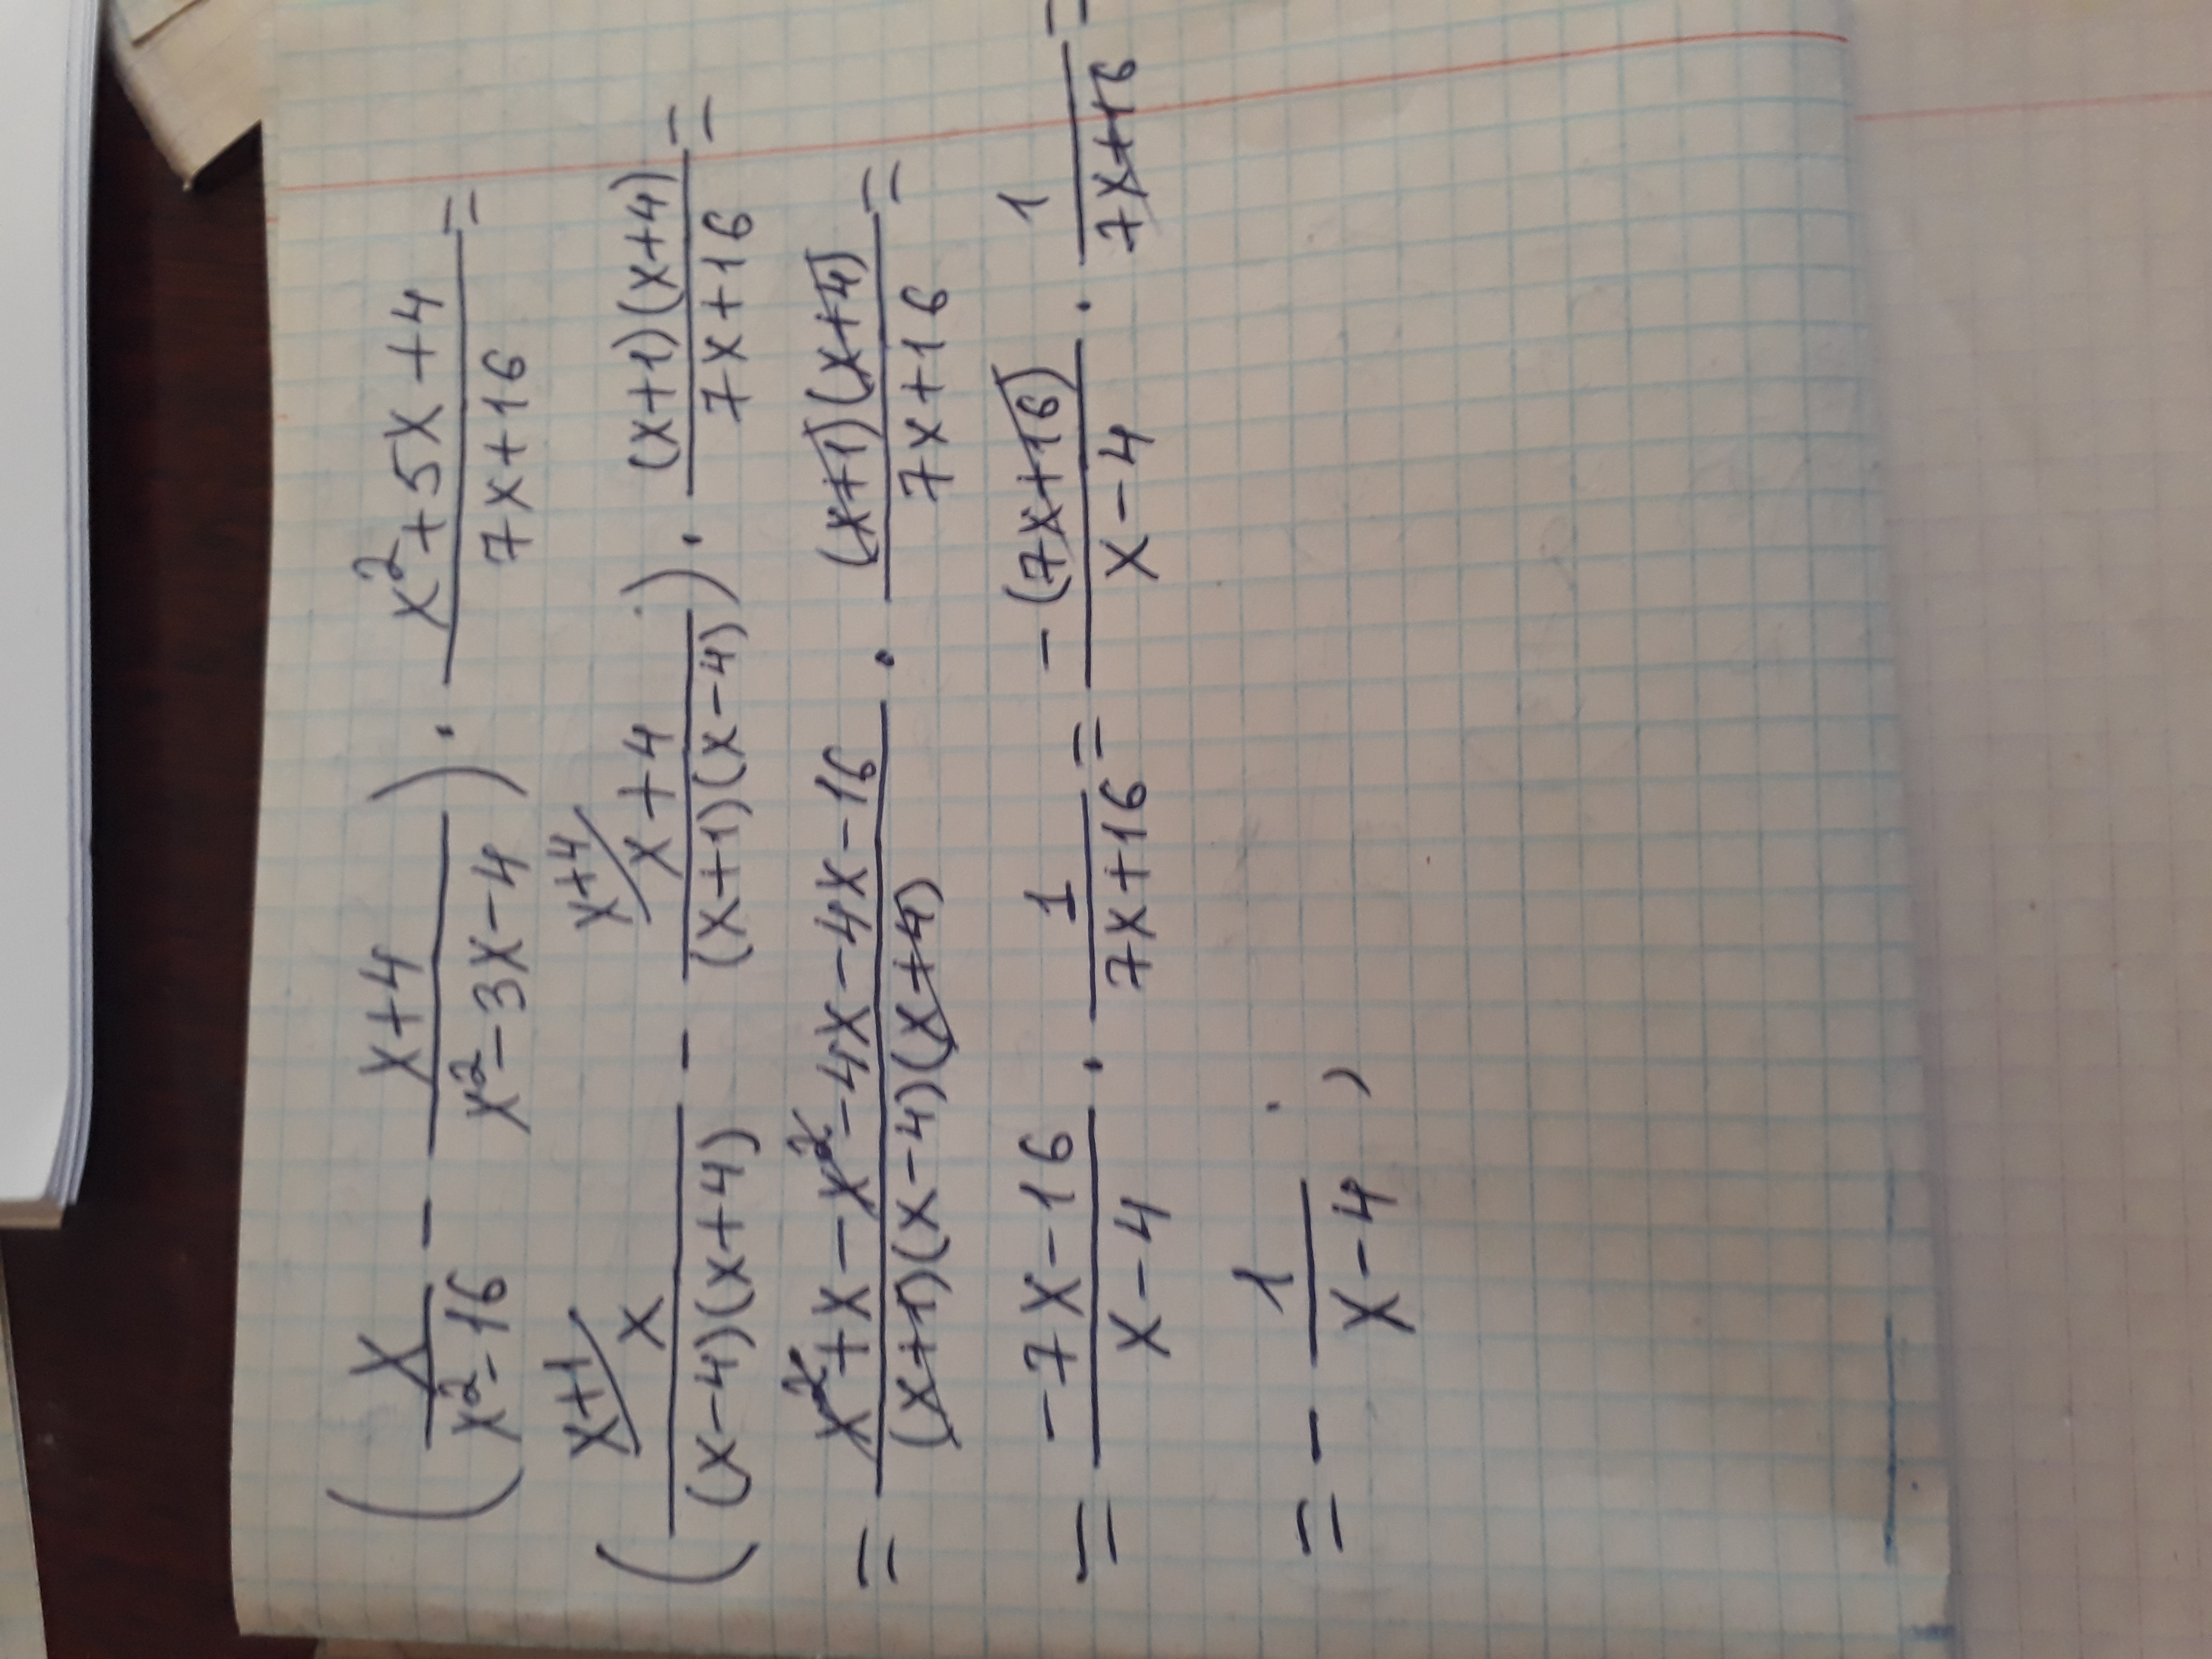 (x/(x²-16) - (x+4)/(x²-3x-4)) · (x²+5x+4)/(7x+16) =
(x+1/ x/((x-4)(x+4)) - x+4/ (x+4)/((x+1)(x-4))) · ((x+1)(x+4))/(7x+16) =
= (x²+x-x²-4x-4x-16)/((x+1)(x-4)(x+4)) · ((x+1)(x+4))/(7x+16) =
= (-7x-16)/(x-4) · 1/(7x+16) = (-(7x+16))/(x-4) · 1/(7x+16) =
= - 1/(x-4)